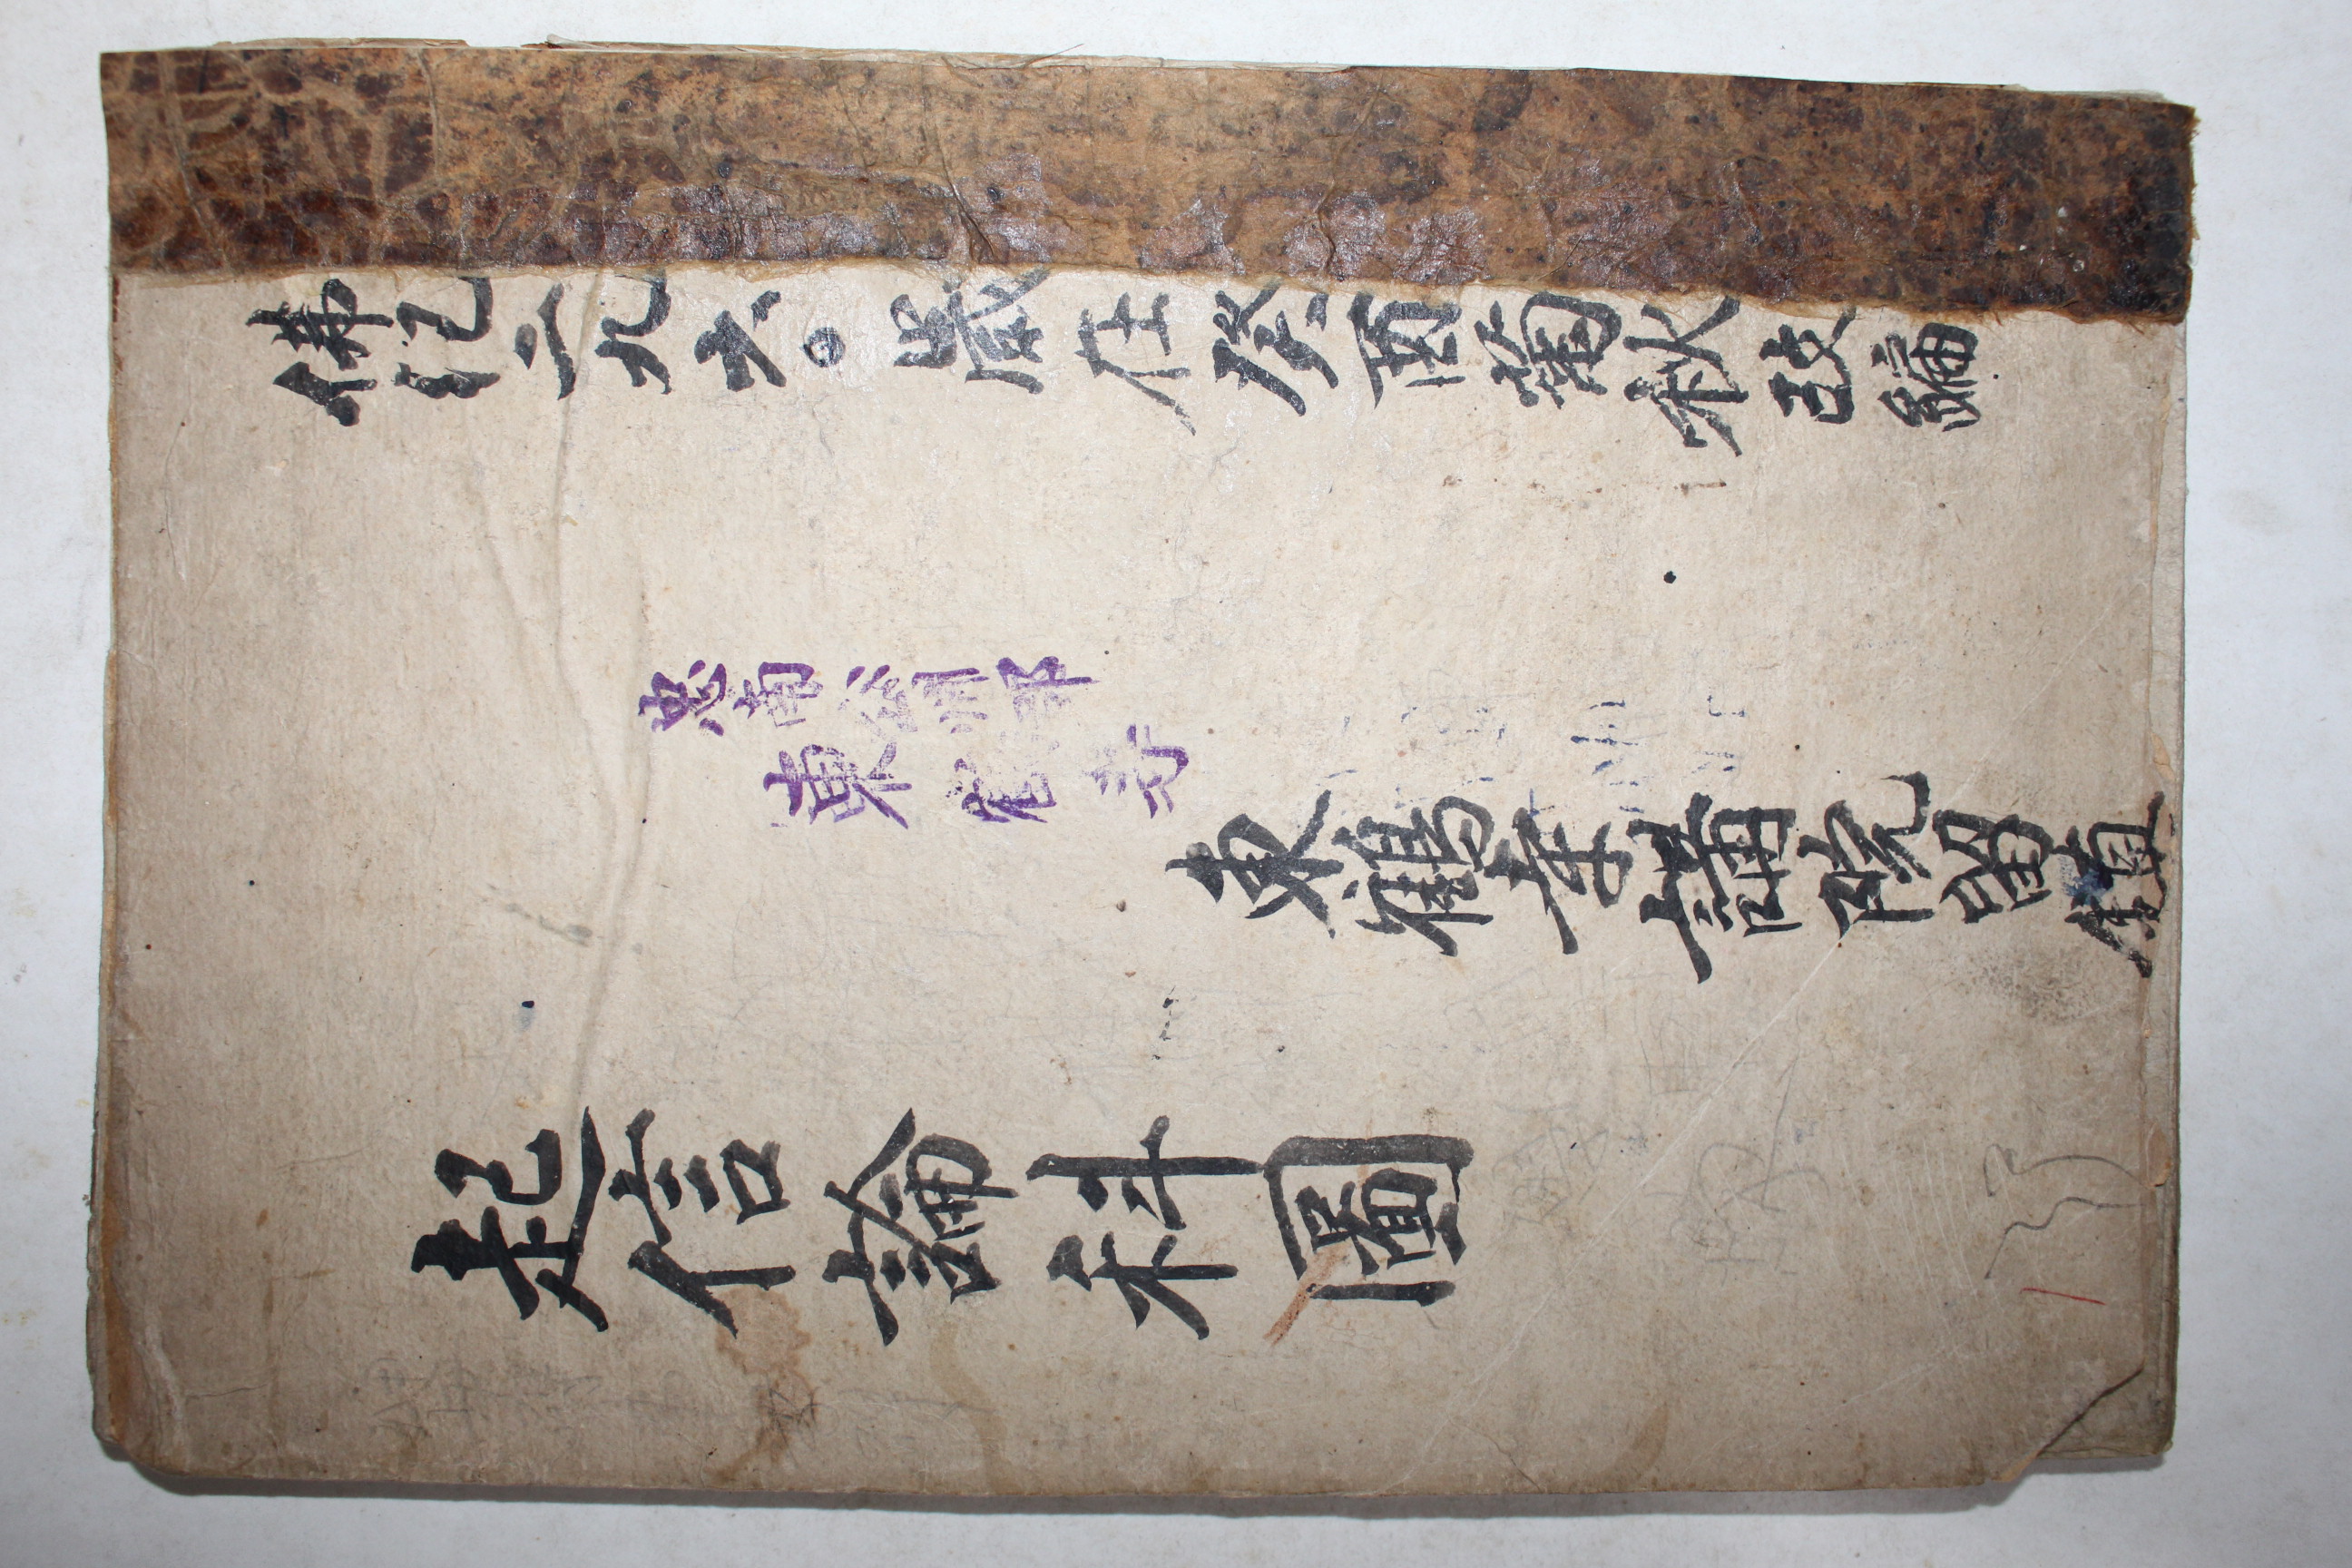 佛紀二九六〇歲在癸酉菊秋改編
忠南
東鶴寺
東鶴寺講院留鎭
起信論科圖